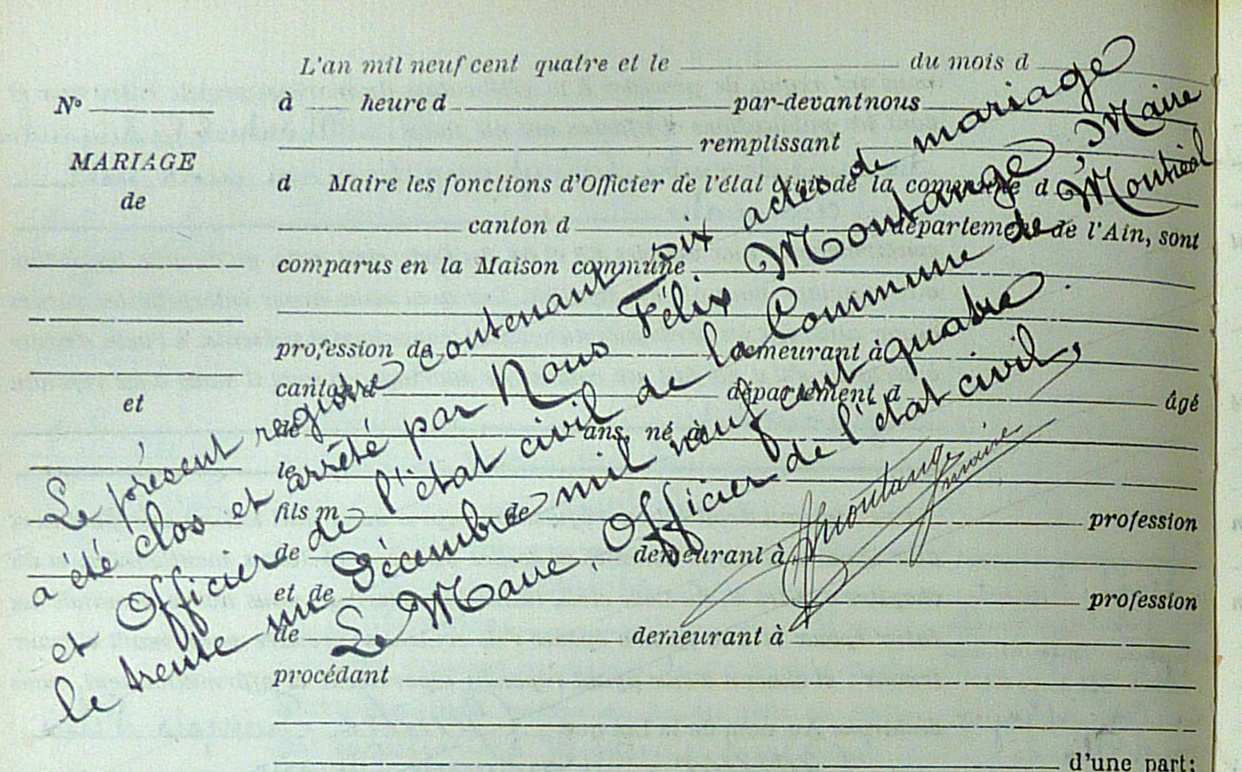 L'an mil neuf cent quatre et le du mois d
N° à heure d par-devant nous
MARIAGE remplissant
de d Maire les fonctions d'Officier de l'état civil de la commune d
canton d département de l'Ain, sont
comparus en la Maison commune
profession de demeurant à
canton d département d âgé
et de ans, né à
le
fils m
de demeurant à profession
et de profession
de demeurant à
procédant
d'une part;
Le présent registre contenant six actes de mariage
a été clos et arrêté par Nous Félix Montange, Maire
et Officier de l'état civil de la Commune de Montréal
le trente un Décembre mil neuf cent quatre.
Le Maire, Officier de l'état civil,
Fmontange
maire